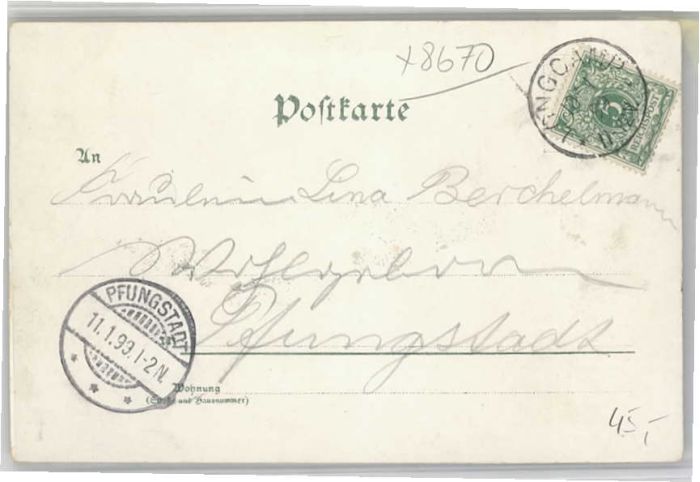 x8670
Postkarte
5
REICHSPOST
An
Fräulein Lina Berchelmann
Wohlgeboren
Pfungstadt
PFUNGSTADT
11.1.99.1-2N.
Wohnung
(Straße und Hausnummer)
45,-